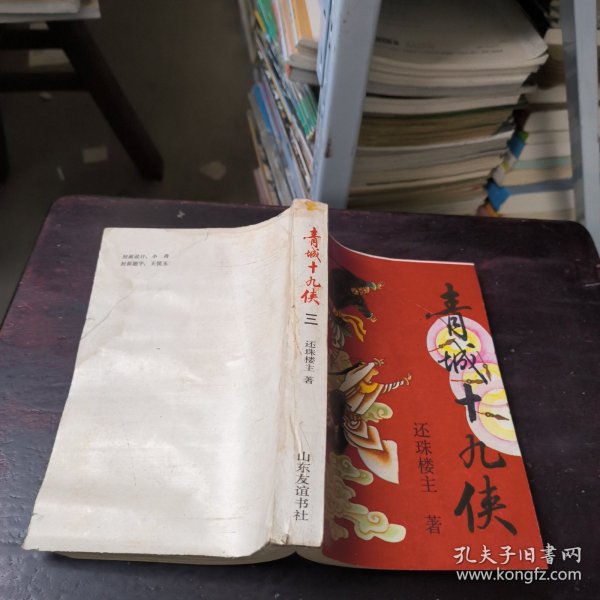 封面设计：小青
封面题字：王俊玉
青城十九侠
三
还珠楼主 著
山东友谊书社
青城十九侠
还珠楼主 著
孔夫子旧书网
www.kongfz.com